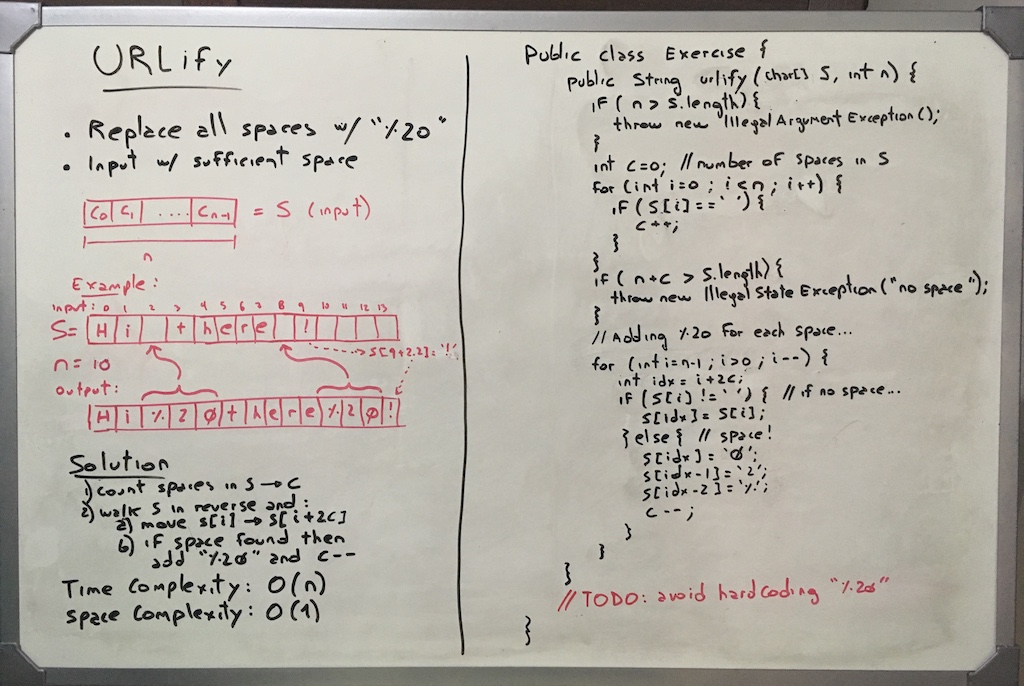 URLify
• Replace all spaces w/ "%20"
• Input w/ sufficient space
C0 C1 .... Cn-1 = S (input)
n
Example:
input: 0 1 2 3 4 5 6 7 8 9 10 11 12 13
S= H i t h e r e !
→ S[9+2.2]='!'
n= 10
output:
H i % 2 0 t h e r e % 2 0 !
Solution
1) count spaces in S → C
2) walk S in reverse and:
a) move s[i] → s[i+2c]
b) if space found then
add "%20" and c--
Time Complexity: O(n)
Space Complexity: O(1)
Public class Exercise {
public String urlify (char[] S, int n) {
if ( n > S.length) {
throw new IllegalArgumentException();
}
int c=0; // number of spaces in S
for (int i=0 ; i<n ; i++) {
if (S[i]==' ') {
c++;
}
}
if ( n+c > S.length) {
throw new IllegalStateException("no space");
}
// Adding %20 for each space...
for (int i=n-1 ; i>0 ; i--) {
int idx = i+2c;
if (S[i] !=' ') { // if no space...
S[idx]= S[i];
} else { // space!
S[idx] = '0';
S[idx-1]='2';
S[idx-2]='%';
c--;
}
}
}
// TODO: avoid hardcoding "%20"
}